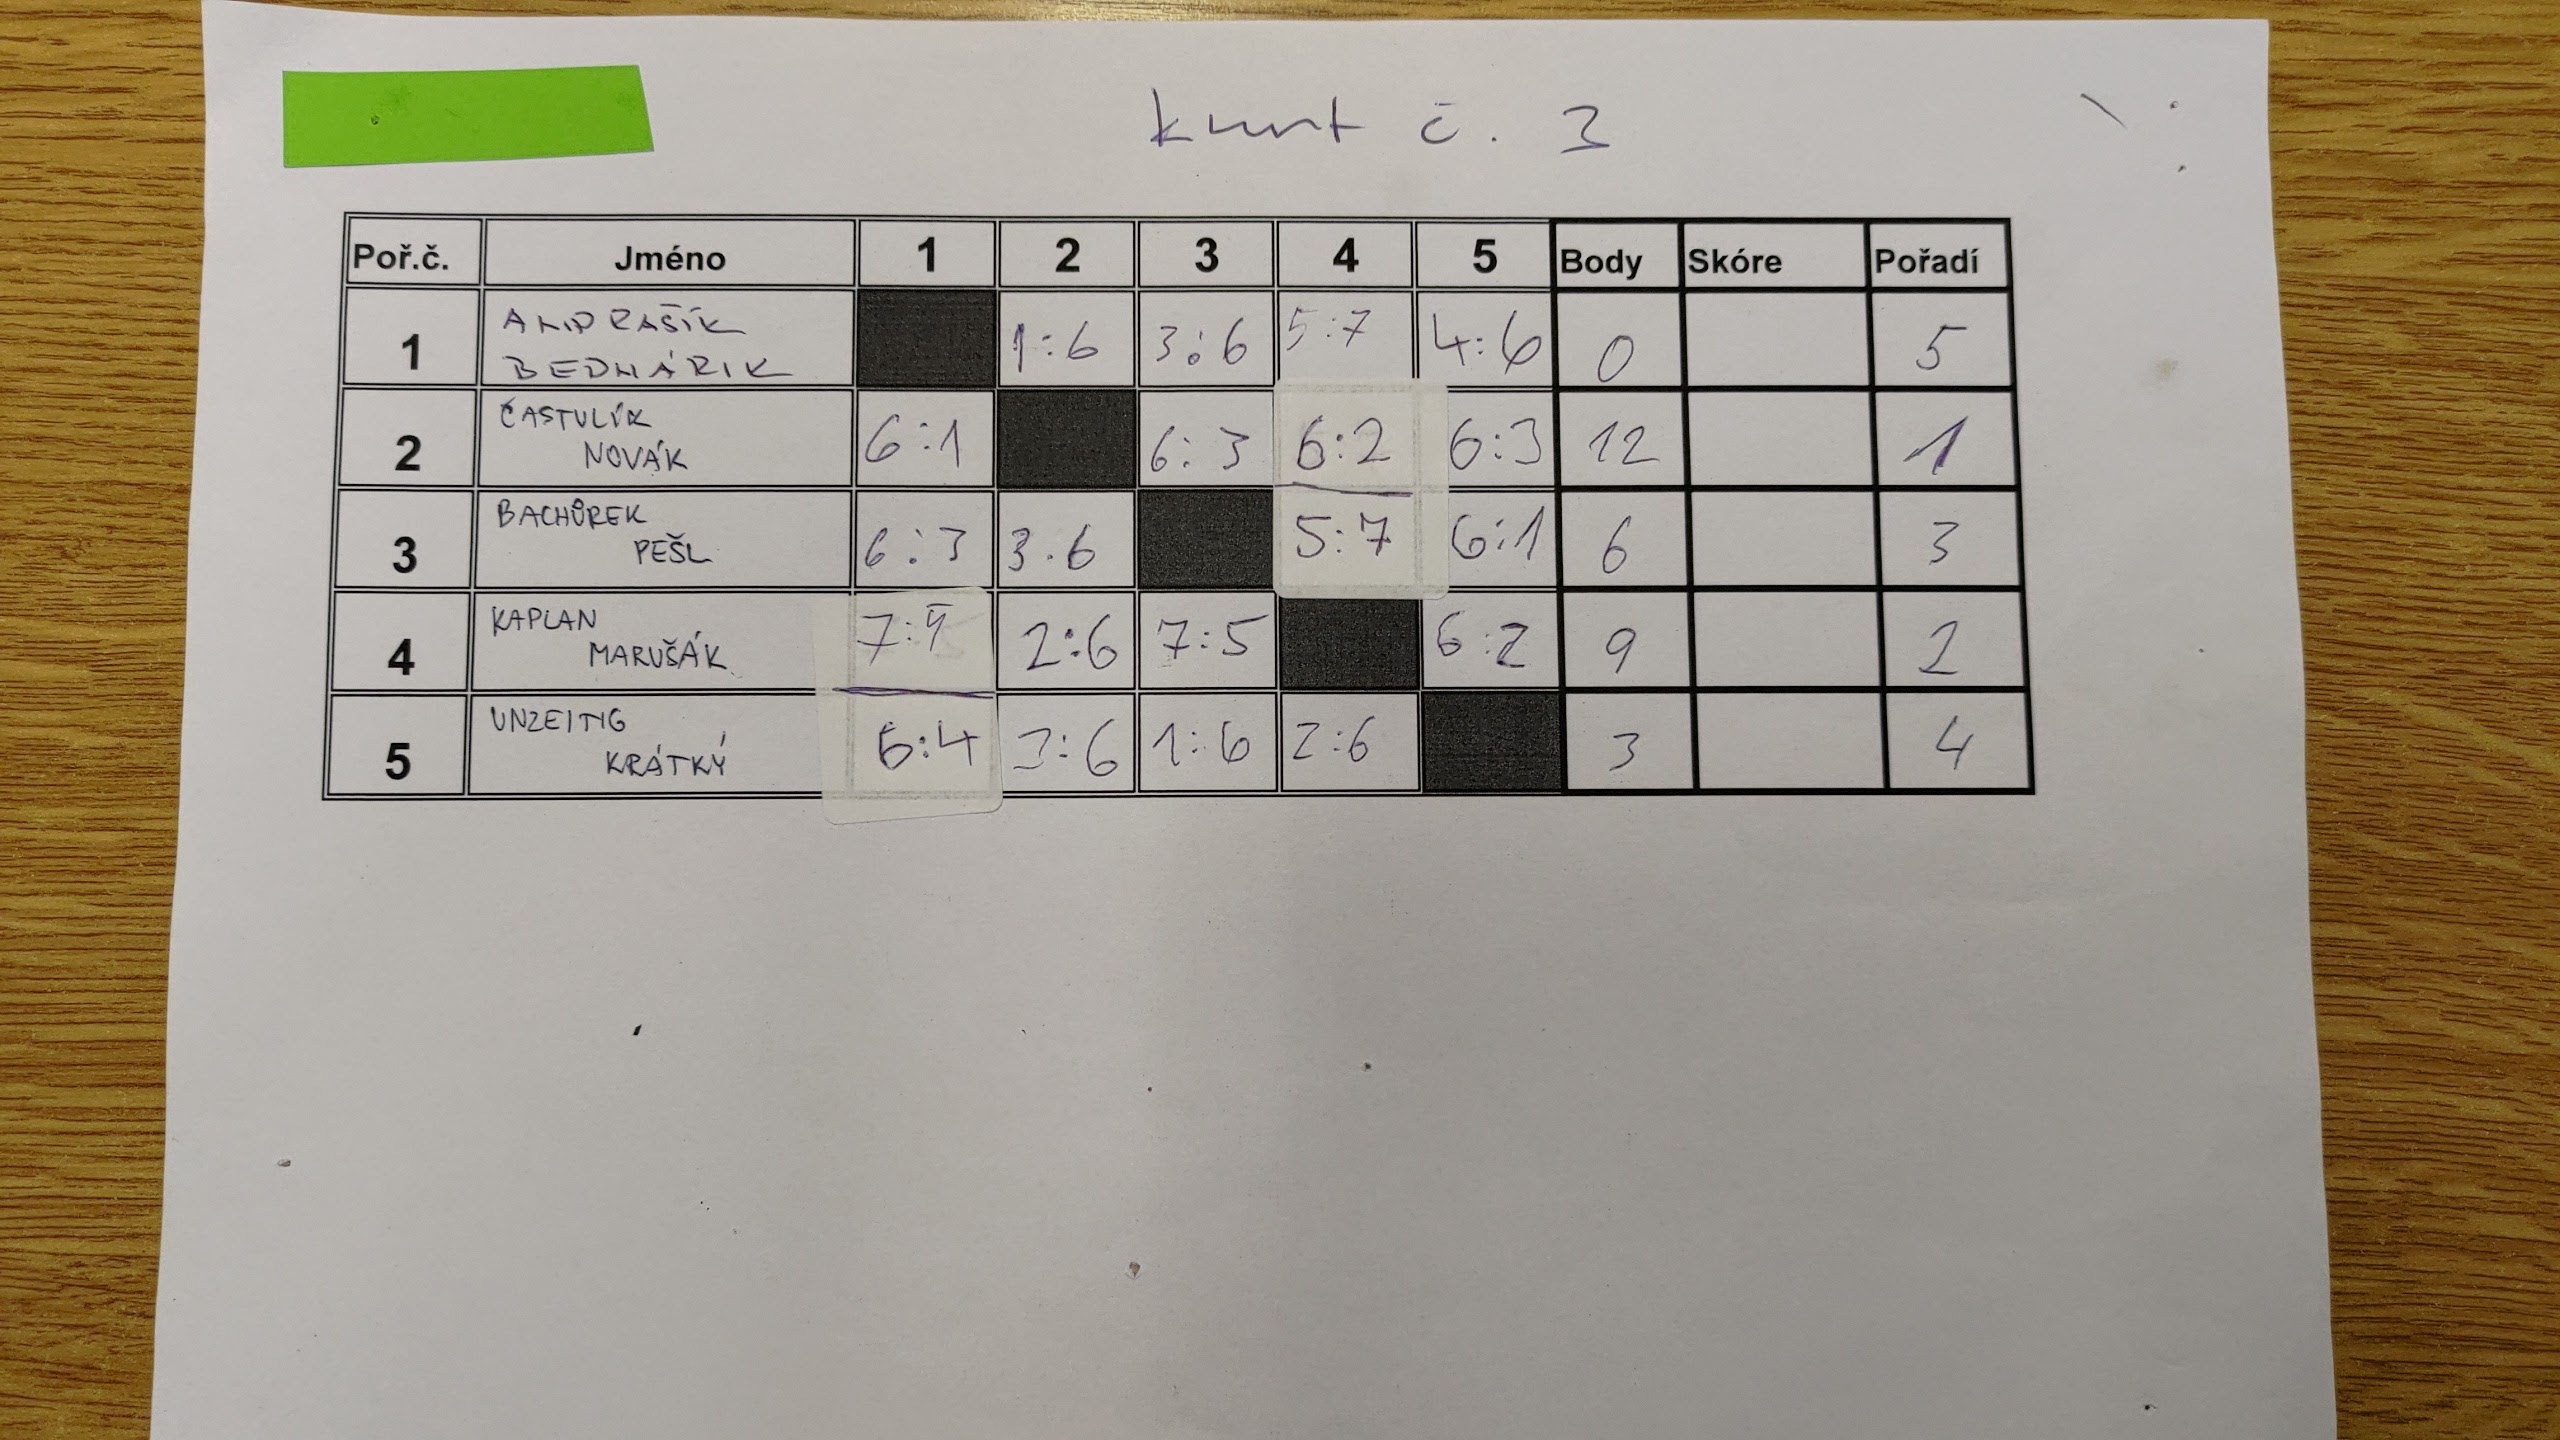 kurt č. 3
Poř.č. Jméno 1 2 3 4 5 Body Skóre Pořadí
1 ANDRAŠÍK BEDNÁRIK 1:6 3:6 5:7 4:6 0 5
2 ČASTULÍK NOVÁK 6:1 6:3 6:2 6:3 12 1
3 BACHŮREK PEŠL 6:3 3.6 5:7 6:1 6 3
4 KAPLAN MARUŠÁK 7:5 2:6 7:5 6:2 9 2
5 UNZEITIG KRÁTKÝ 6:4 3:6 1:6 2:6 3 4